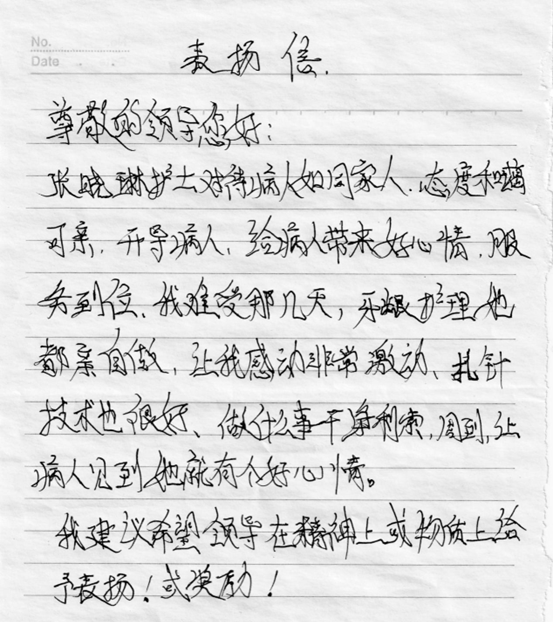 No.
Date
表扬信.
尊敬的领导您好:
张晓琳护士对待病人如同家人.态度和蔼
可亲.开导病人、给病人带来好心情.服
务到位、我难受那几天,牙龈护理她
都亲自做、让我感动非常激动、扎针
技术也很好、做什么事干净利索,周到,让
病人见到她就有个好心情。
我建议希望领导在精神上或物质上给
予表扬!或奖励!